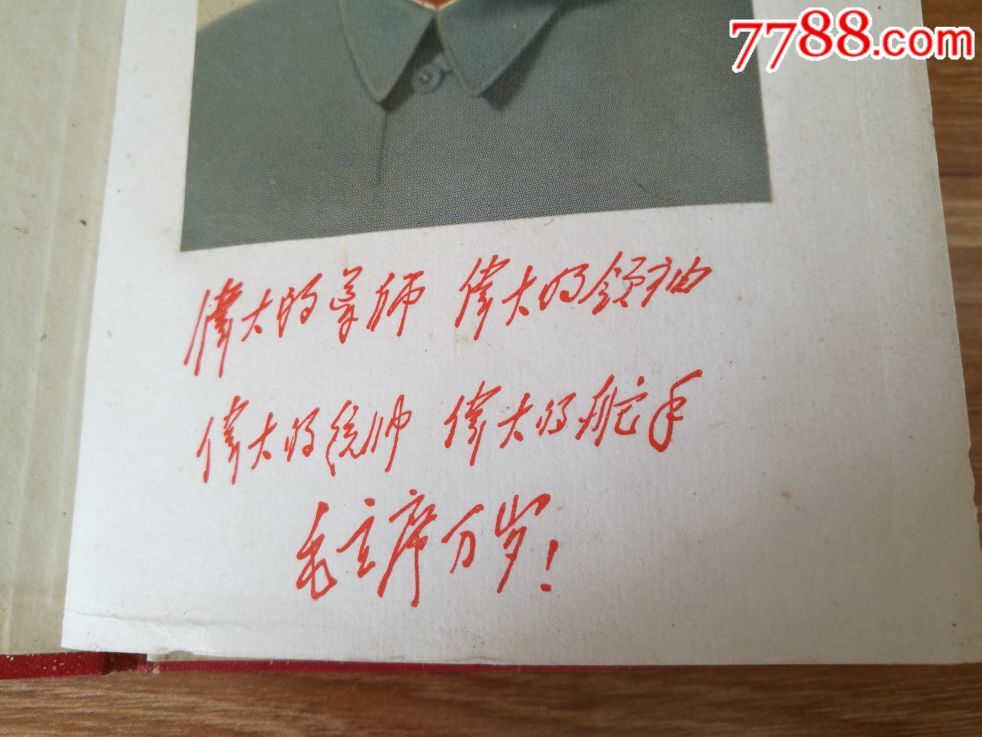 7788.com
偉大的导师 偉大的领袖
偉大的统帅 偉大的舵手
毛主席万岁!